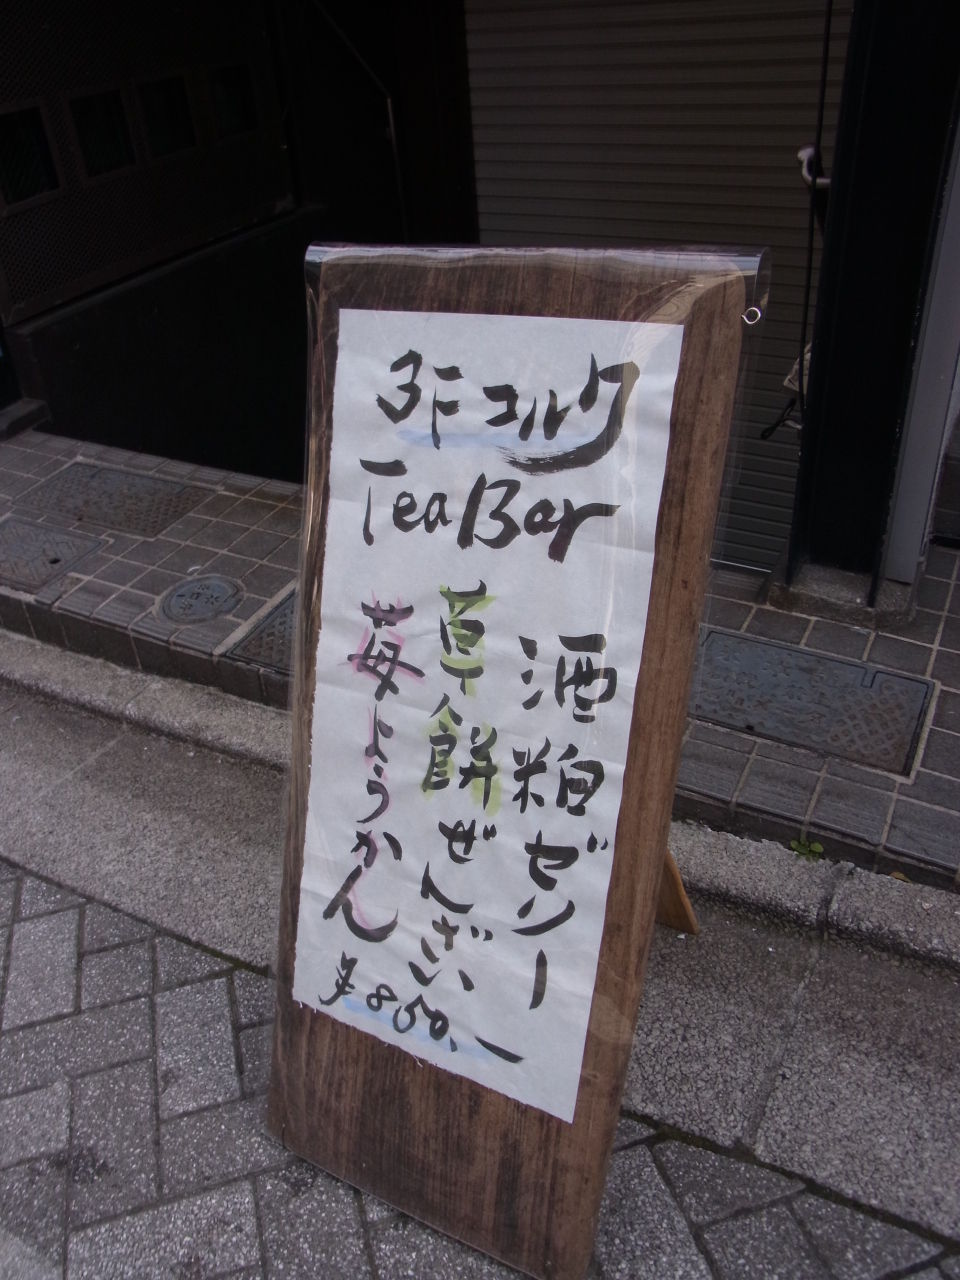 3F コルク
Tea Bar
酒粕ゼリー
草餅ぜんざい
苺ようかん
¥850.-